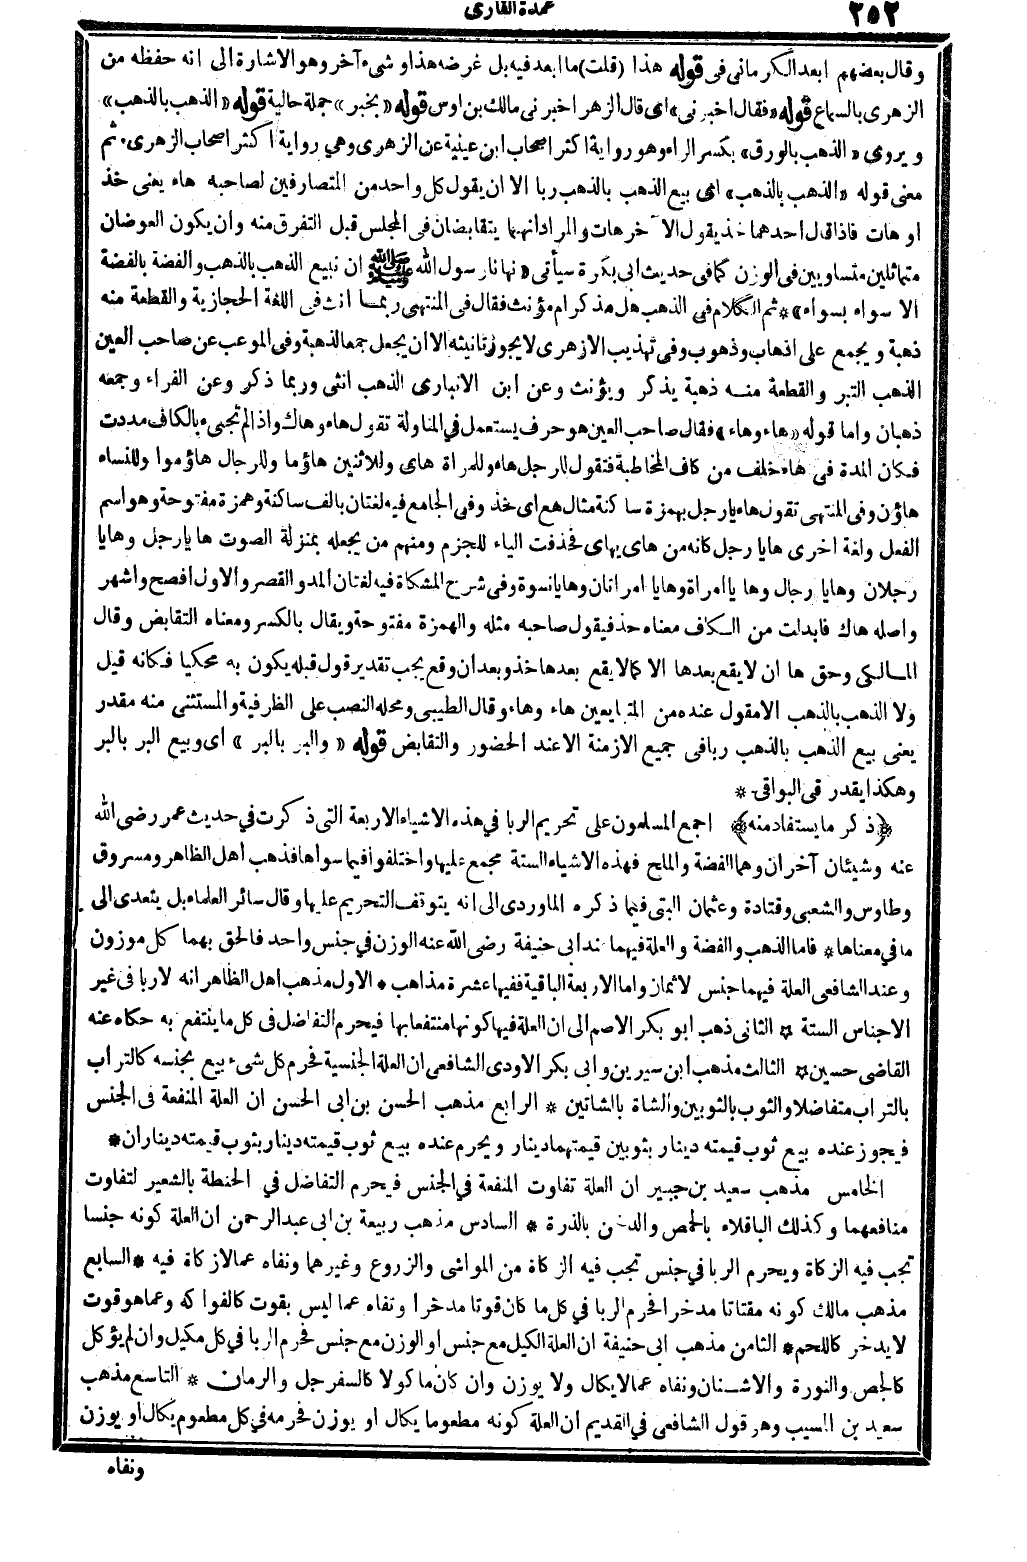 ٢٥٢
عمدة القارى
وقال بعضهم ابعد الكرمانى فى قوله هذا (قلت) ما ابعد فيه بل غرضه هذا وشىء آخر وهو الاشارة الى انه حفظه من
الزهرى بالسماع قوله «فقال اخبرنى» اى قال الزهرا خبرنى مالك بن اوس قوله «يخبر» جملة حالية قوله «الذهب بالذهب»
ويروى «الذهب بالورق» بكسر الراء وهو رواية اكثر اصحاب ابن عيينة عن الزهرى وهي رواية اكثر اصحاب الزهرى. ثم
معنى قوله «الذهب بالذهب» اى بيع الذهب بالذهب ربا الا ان يقول كل واحد من المتصارفين لصاحبه هاء يعنى خذ
او هات فاذا قال احدهما خذ يقول الآخر هات والمراد انهما يتقابضان فى المجلس قبل التفرق منه وان يكون العوضان
متماثلين متساويين فى الوزن كما فى حديث ابى بكرة سيأتى «نهانا رسول الله ﷺ ان نبيع الذهب بالذهب والفضة بالفضة
الا سواء بسواء» * ثم الكلام فى الذهب هل مذكر ام مؤنث فقال فى المنتهى ربما انث فى اللغة الحجازية والقطعة منه
ذهبة ويجمع على اذهاب وذهوب وفى تهذيب الازهرى لا يجوز تانيثه الا ان يجعل جمعا لذهبة وفى الموعب عن صاحب العين
الذهب التبر والقطعة منه ذهبة يذكر ويؤنث وعن ابن الانبارى الذهب انثى وربما ذكر وعن الفراء وجمعه
ذهبان واما قوله «هاء وهاء» فقال صاحب العين هو حرف يستعمل في المناولة تقول هاء وهاك واذا لم تجىء بالكاف مددت
فكان المدة فى هاء خلف من كاف المخاطبة فتقول للرجل هاء وللمراة هاى وللاثنين هاؤما وللرجال هاؤموا وللنساء
هاؤن وفى المنتهى تقول هاء يا رجل بهمزة ساكنة مثال هع اى خذ وفى الجامع فيه لغتان بالف ساكنة وهمزة مفتوحة وهو اسم
الفعل ولغة اخرى هايا رجل كانه من هاى يهاى فحذفت الياء للجزم ومنهم من يجعله بمنزلة الصوت ها يا رجل وهايا
رجلان وهايا رجال وها يا امراة وهايا امرانان وهايا نسوة وفى شرح المشكاة فيه لغتان المد والقصر والاول افصح واشهر
واصله هاك فابدلت من الكاف معناه خذ فيقول صاحبه مثله والهمزة مفتوحة ويقال بالكسر ومعناه التقابض وقال
المالكى وحق ها ان لا يقع بعدها الا كما لا يقع بعدها خذ وبعد ان وقع يجب تقدير قول قبله يكون به محكيا فكانه قيل
ولا الذهب بالذهب الا مقول عنده من المتبايعين هاء وهاء وقال الطيبى ومحله النصب على الظرفية والمستثنى منه مقدر
يعنى بيع الذهب بالذهب ربا فى جميع الازمنة الا عند الحضور والتقابض قوله «والبر بالبر» اى وبيع البر بالبر
وهكذا يقدر فى البواقى *
﴿ذكر ما يستفاد منه﴾ اجمع المسلمون على تحريم الربا في هذه الاشياء الاربعة التى ذكرت في حديث عمر رضى الله
عنه وشيئان آخران وهما الفضة والملح فهذه الاشياء الستة مجمع عليها واختلفوا فيما سواها فذهب أهل الظاهر ومسروق
وطاوس والشعبى وقتادة وعثمان البتى فيما ذكره الماوردى الى انه يتوقف التحريم عليها وقال سائر العلماء بل يتعدى الى
ما في معناها * فاما الذهب والفضة والعلة فيهما عند ابى حنيفة رضى الله عنه الوزن في جنس واحد فالحق بهما كل موزون
وعند الشافعى العلة فيهما جنس الاثمان واما الاربعة الباقية ففيها عشرة مذاهب * الاول مذهب اهل الظاهر انه لا ربا فى غير
الاجناس الستة * الثانى ذهب ابو بكر الاصم الى ان العلة فيها كونها منتفعا بها فيحرم التفاضل فى كل ما ينتفع به حكاه عنه
القاضى حسين * الثالث مذهب ابن سيرين وابى بكر الاودى الشافعى ان العلة الجنسية فحرم كل شىء بيع بجنسه كالتراب
بالتراب متفاضلا والثوب بالثوبين والشاة بالشاتين * الرابع مذهب الحسن بن ابى الحسن ان العلة المنفعة فى الجنس
فيجوز عنده بيع ثوب قيمته دينار بثوبين قيمتهما دينار ويحرم عنده بيع ثوب قيمته دينار بثوب قيمته ديناران *
الخامس مذهب سعيد بن جبير ان العلة تفاوت المنفعة في الجنس فيحرم التفاضل في الحنطة بالشعير لتفاوت
منافعهما وكذلك الباقلاء بالحمص والدخن بالذرة * السادس مذهب ربيعة بن ابى عبد الرحمن ان العلة كونه جنسا
تجب فيه الزكاة ويحرم الربا في جنس تجب فيه الزكاة من المواشى والزروع وغيرهما ونفاه عما لا زكاة فيه * السابع
مذهب مالك كونه مقتاتا مدخرا فحرم الربا في كل ما كان قوتا مدخرا ونفاه عما ليس بقوت كالفواكه وعما هو قوت
لا يدخر كاللحم * الثامن مذهب ابى حنيفة ان العلة الكيل مع جنس او الوزن مع جنس فحرم الربا في كل مكيل وان لم يؤكل
كالجص والنورة والاشنان ونفاه عما لا يكال ولا يوزن وان كان ماكولا كالسفرجل والرمان * التاسع مذهب
سعيد بن المسيب وهو قول الشافعى في القديم ان العلة كونه مطعوما يكال او يوزن فحرمه في كل مطعوم يكال او يوزن
ونفاه